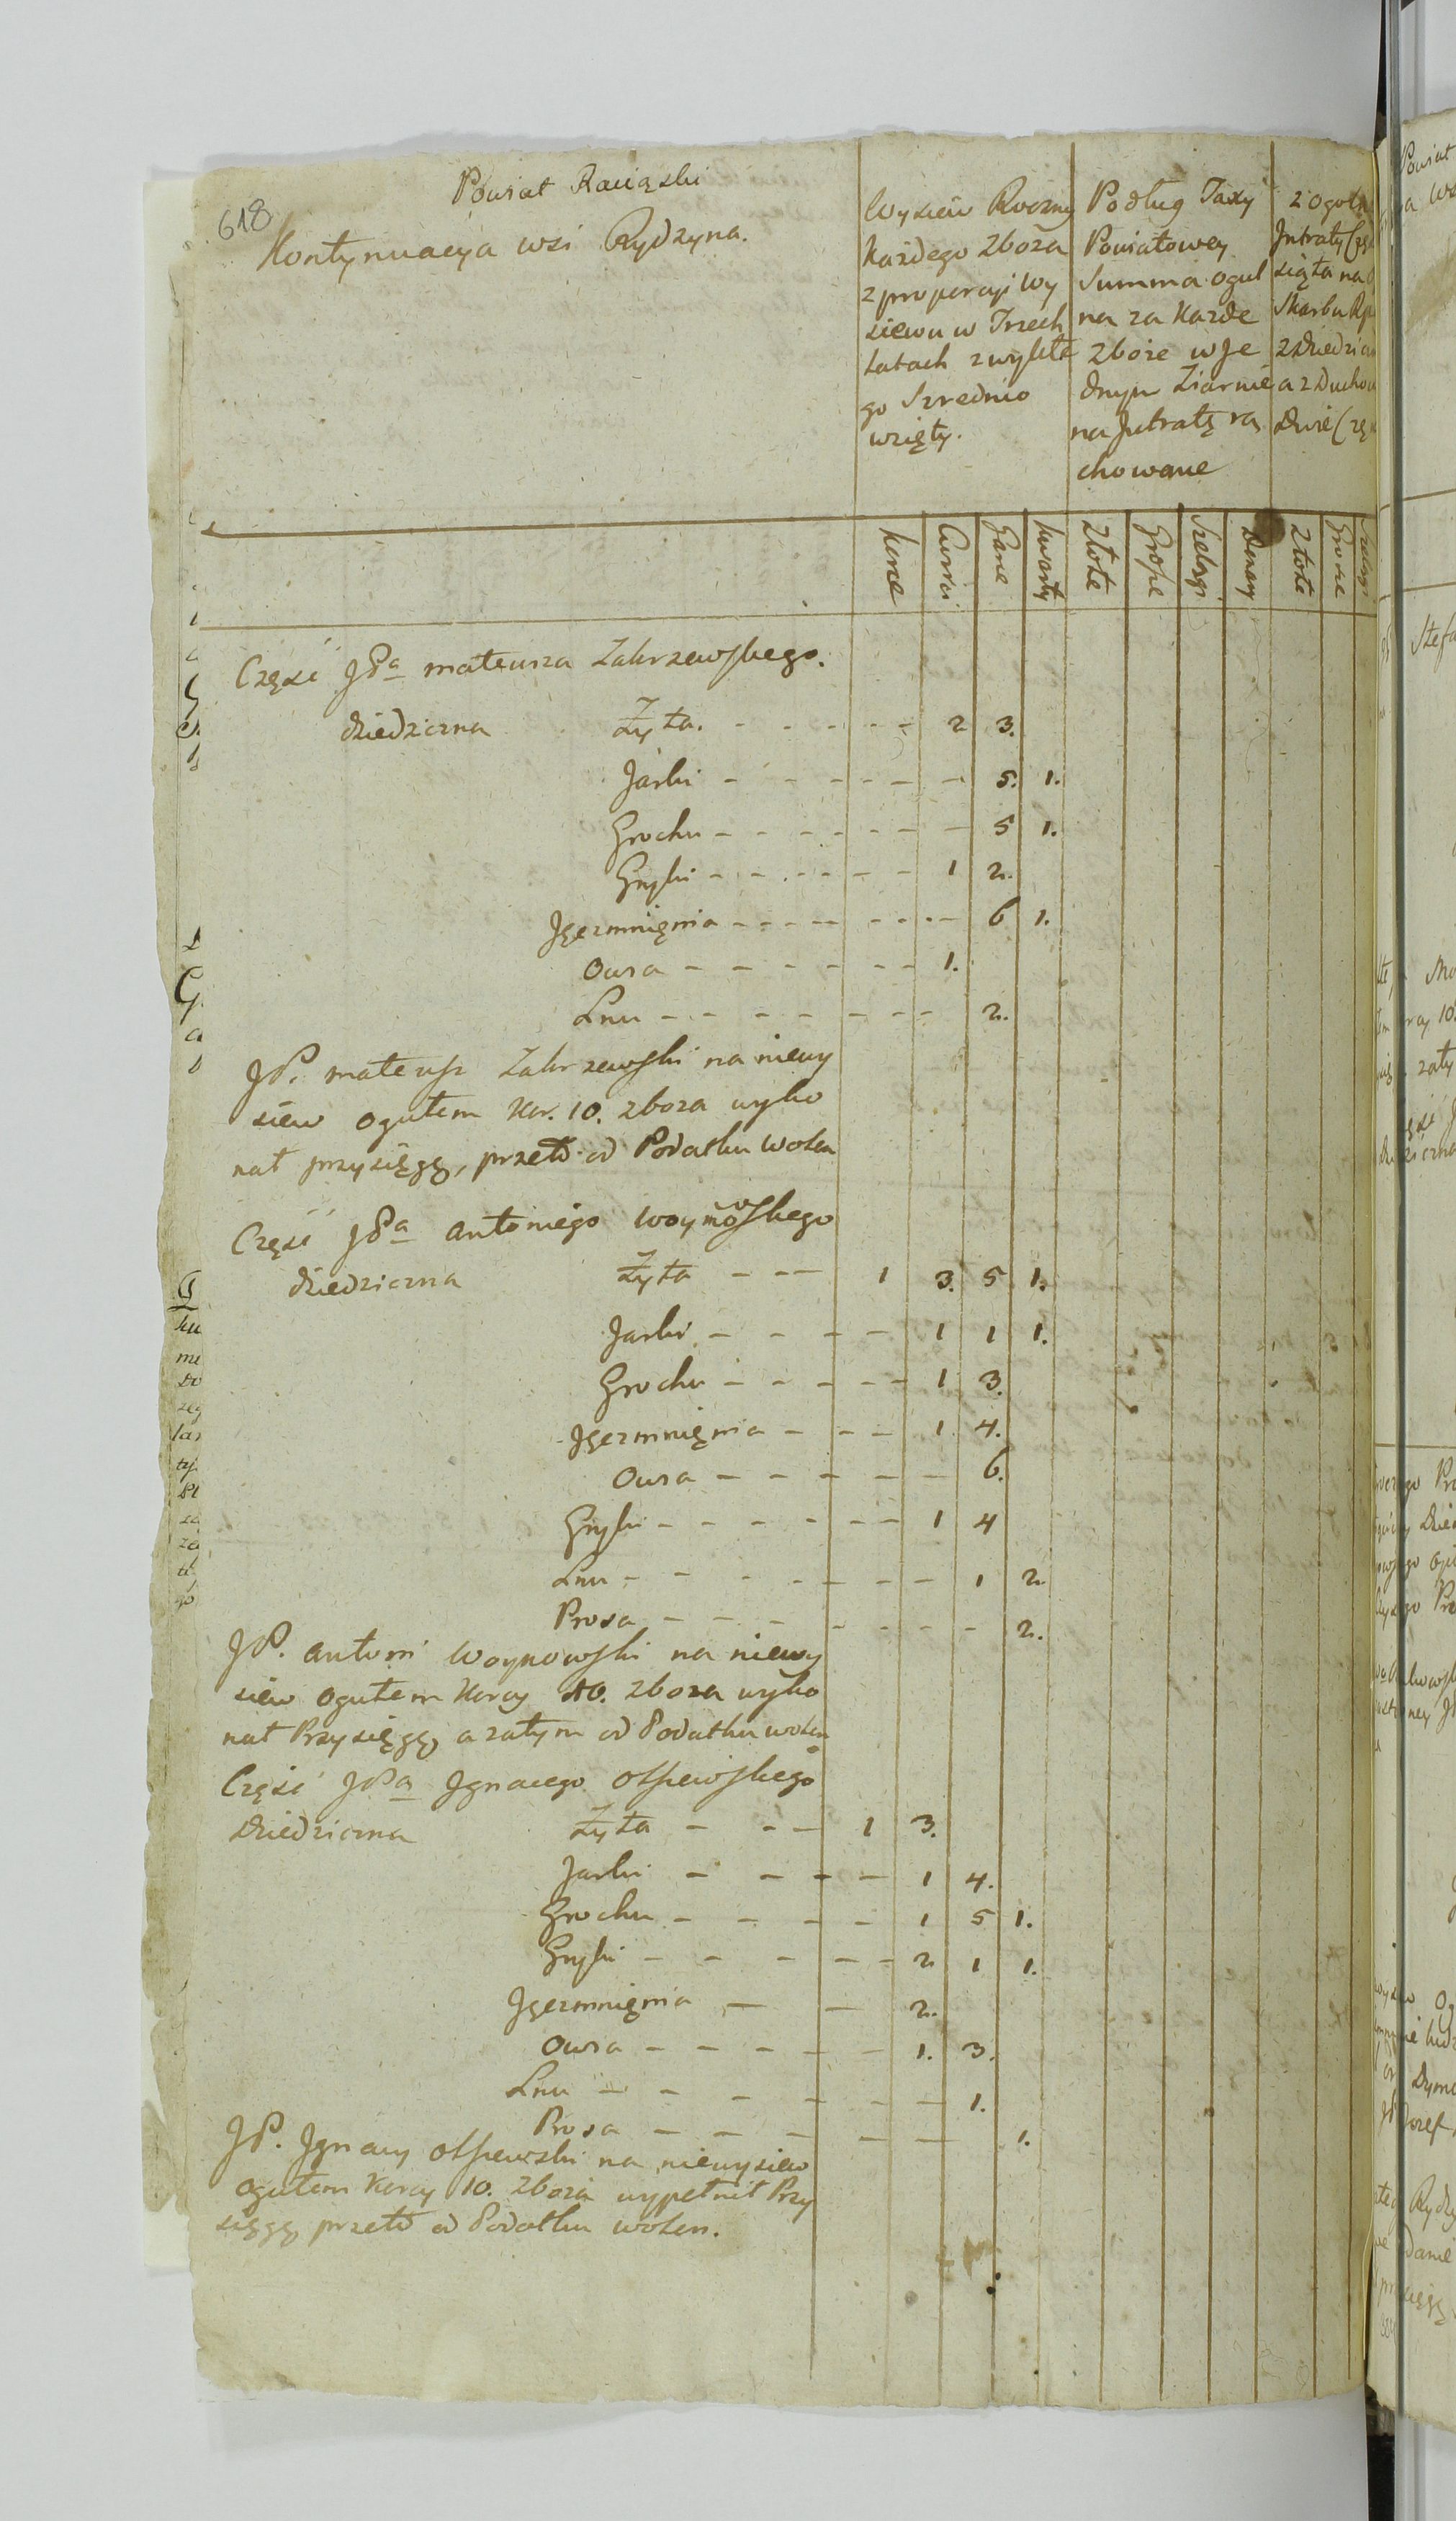 Powiat Raciązki
618
Kontynuacya wsi Rydzyna.
Wysiew Roczny
każdego zboża
z proporcji wy
siewu w Trzech
Latach zwykłe
go srzednio
wzięty.
Podług Taxy
Powiatowey
Summa ogul
na za każde
zboże w Je
dnym Ziarnie
na Jntratę ra
chowane
z ogoln
Jntraty
siąta na
Skarbu
z dziedzi
a z Ducho
Dwie
korce Cwierci Garce kwarty Złote Grosze Szelągi Denary Złote Grosze Szelągi
Część JPa mateusza Zakrzewskiego.
dziedziczna Zyta. - - - - - 2 3.
Jarki - - - - - - 5. 1.
Grochu - - - - - - 5 1.
Gryki - - - - - - 1 2.
Jęczmnięnia - - - - - - - 6 1.
Owsa - - - - - - - 1.
Lnu - - - - - - - 2.
JP. mateusz Zakrzewski na niewy
siew ogułem kor. 10. zboza wyko
nał przysięgę, przeto od Podatku wolen
Część JPa antoniego Woynowskiego
dziedziczna Zyta - - - 1 3. 5 1.
Jarki - - - - 1 1 1.
Grochu - - - - - 1 3.
Jęczmnięnia - - - 1 4.
Owsa - - - - - - 6.
Gryki - - - - - - 1 4
Lnu - - - - - - - 1 2.
Prosa - - - - - - - 2.
JP. antoni Woynowski na niewy
siew ogułem korcy 10. zboza wyko
nał Przysięgę, a zatym od Podatku wolen
Część JPa Jgnacego Olszewskiego
Dziedziczna Zyta - - - 1 3.
Jarki - - - - 1 4.
Grochu - - - - 1 5 1.
Gryki - - - - - 2 1 1.
Jęczmnięnia - - 2.
Owsa - - - - - 1. 3.
Lnu - - - - - - 1.
Prosa - - - - - - 1.
JP. Jgnacy Olszewski na niewysiew
ogułem korcy 10. zboża wypełnił Przy
sięgę przeto od Podatku wolen.